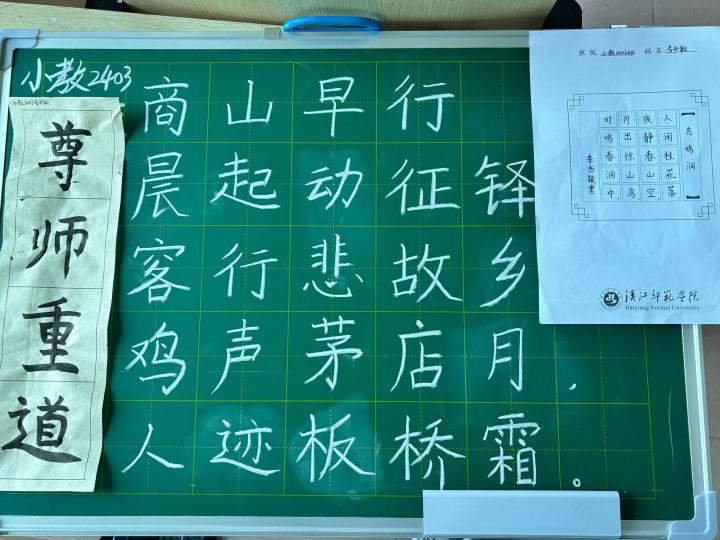 小教2403
商山早行
晨起动征铎
客行悲故乡
鸡声茅店月,
人迹板桥霜。
尊师重道
班级 小教2403班 姓名
【鸟鸣涧】
人闲桂花落
夜静春山空
月出惊山鸟
时鸣春涧中
汉江师范学院
Hanjiang Normal University